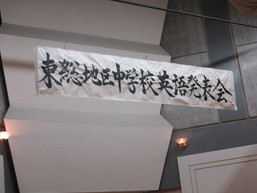 東総地区中学校英語発表会